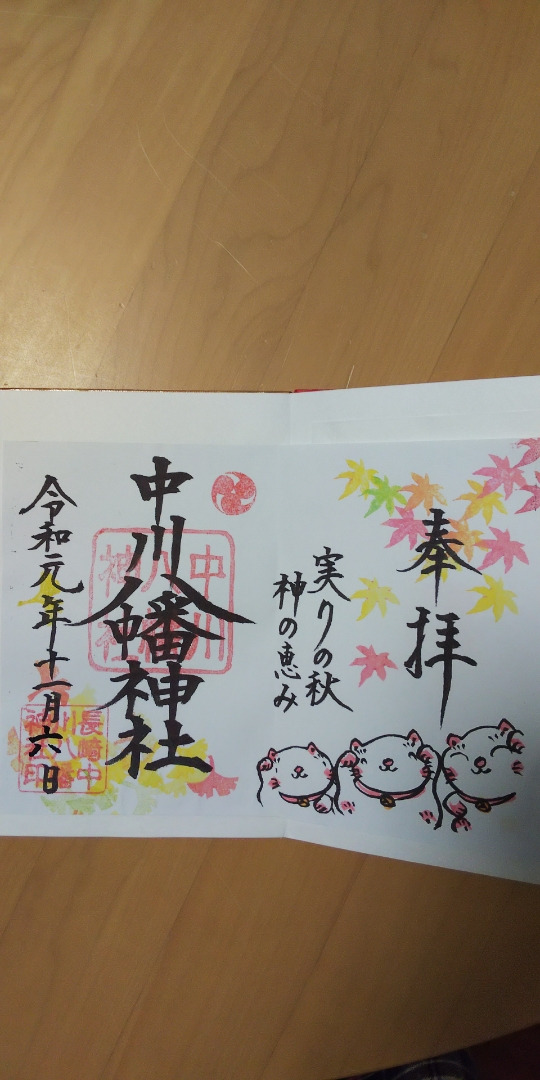 奉拝
実りの秋
神の恵み
中川八幡神社
中川
八幡
神社
令和元年十一月六日
長崎中
川八幡
神社印